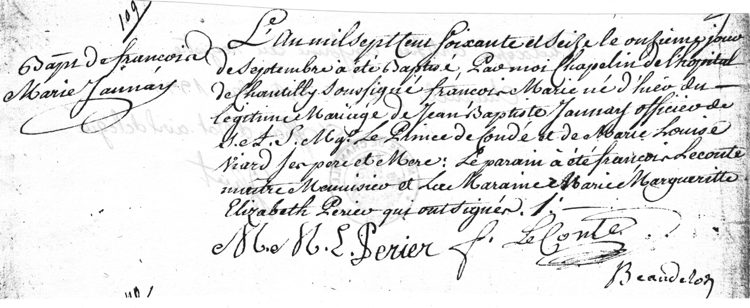 109
Bapt. de francois
Marie Jannay
L'An mil sept cent soixante et seize le onzieme jour
de septembre a été Baptisé, Par moi Chapelin de l'hopital
de Chantilly soussigné francois Marie né d'hier du
legitime Mariage de Jean Baptiste Jannay officier de
S. A. S. Mgr. Le Prince de Condé et de Marie Louise
Viard ses pere et Mere: Le parain a été francois Leconte
maitre Menuisier et La Maraine Marie Margueritte
Elizabeth Perier qui ont signés.
M. M. E. Perier f. Le Conte
Beaudelos